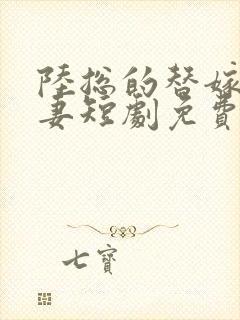 陸總的替嫁
妻短劇免費
七寶